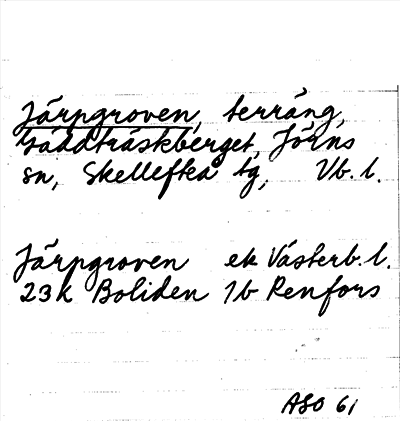 Järpgroven, terräng,
Gäddträskberget, Jörns
sn, Skellefteå tg, Vb. l.
Järpgroven ek Västerb. l.
23K Boliden 1b Renfors
ASO 61